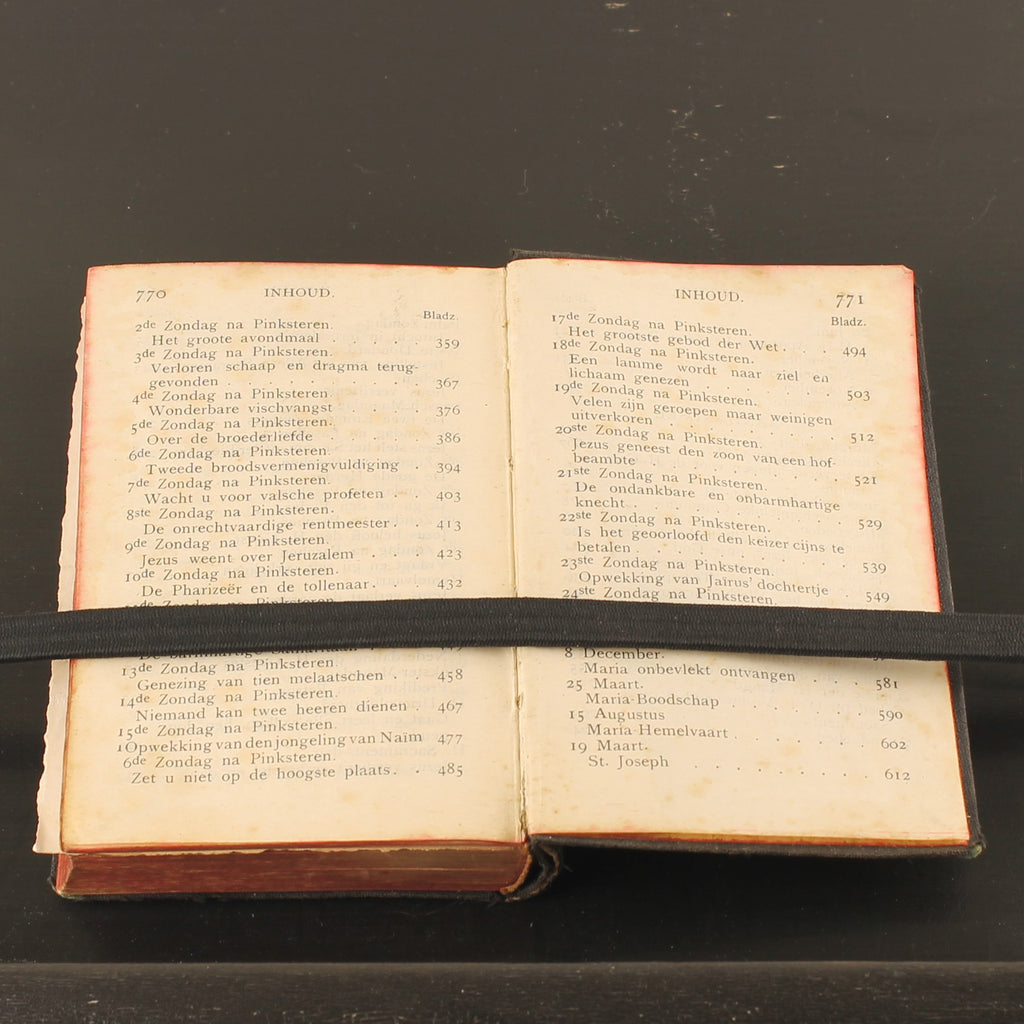 770
INHOUD.
Bladz.
2de Zondag na Pinksteren.
Het groote avondmaal . . . . . 359
3de Zondag na Pinksteren.
Verloren schaap en dragma terug-
gevonden . . . . . . . . 367
4de Zondag na Pinksteren.
Wonderbare vischvangst . . . . 376
5de Zondag na Pinksteren.
Over de broederliefde . . . . . 386
6de Zondag na Pinksteren.
Tweede broodsvermenigvuldiging . 394
7de Zondag na Pinksteren.
Wacht u voor valsche profeten . . 403
8ste Zondag na Pinksteren.
De onrechtvaardige rentmeester. . 413
9de Zondag na Pinksteren.
Jezus weent over Jeruzalem . . . 423
10de Zondag na Pinksteren.
De Pharizeër en de tollenaar. . . 432
Zondag na Pinksteren.
13de Zondag na Pinksteren.
Genezing van tien melaatschen . . 458
14de Zondag na Pinksteren.
Niemand kan twee heeren dienen . 467
15de Zondag na Pinksteren.
1Opwekking van den jongeling van Naïm 477
6de Zondag na Pinksteren.
Zet u niet op de hoogste plaats. . 485
INHOUD.
771
Bladz.
17de Zondag na Pinksteren.
Het grootste gebod der Wet . . . 494
18de Zondag na Pinksteren.
Een lamme wordt naar ziel en
lichaam genezen . . . . . . 503
19de Zondag na Pinksteren.
Velen zijn geroepen maar weinigen
uitverkoren . . . . . . . . 512
20ste Zondag na Pinksteren.
Jezus geneest den zoon van een hof-
beambte . . . . . . . . . 521
21ste Zondag na Pinksteren.
De ondankbare en onbarmhartige
knecht . . . . . . . . . 529
22ste Zondag na Pinksteren.
Is het geoorloofd den keizer cijns te
betalen . . . . . . . . . 539
23ste Zondag na Pinksteren.
Opwekking van Jaïrus' dochtertje . 549
24ste Zondag na Pinksteren.
8 December.
Maria onbevlekt ontvangen . . . 581
25 Maart.
Maria-Boodschap . . . . . . 590
15 Augustus
Maria Hemelvaart . . . . . . 602
19 Maart.
St. Joseph . . . . . . . . 612